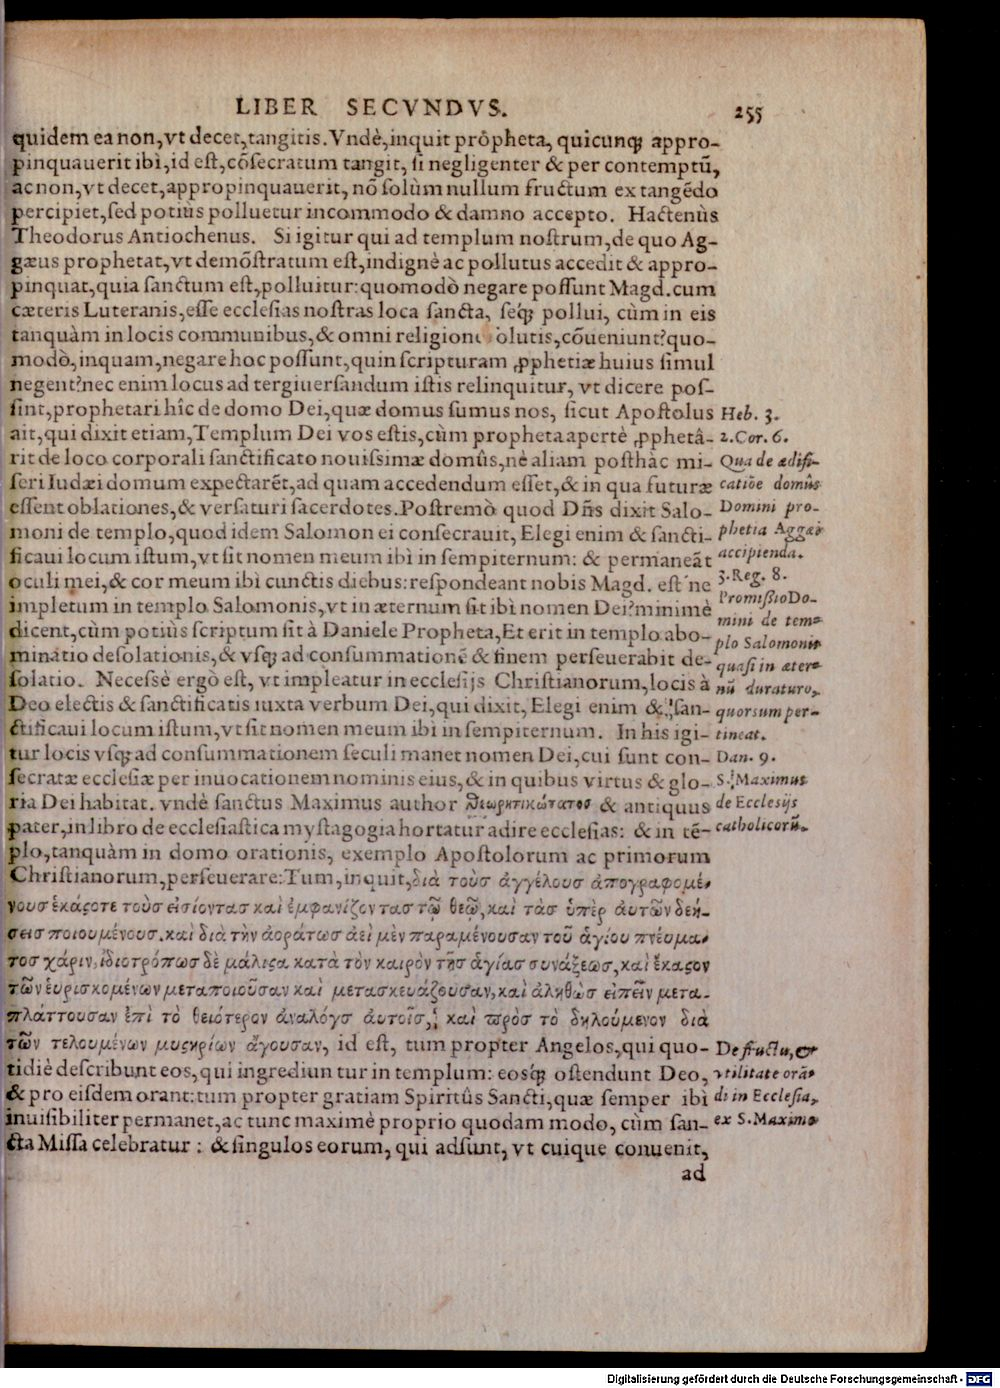 LIBER SECVNDVS. 255
quidem ea non, vt decet, tangitis. Vndè, inquit prôpheta, quicunq; appro-
pinquauerit ibì, id eſt, cōſecratum tangit, ſi negligenter & per contemptū,
ac non, vt decet, appropinquauerit, nō ſolùm nullum fructum ex tangēdo
percipiet, ſed potiùs polluetur incommodo & damno accepto. Hactenùs
Theodorus Antiochenus. Si igitur qui ad templum noſtrum, de quo Ag-
gæus prophetat, vt demōſtratum eſt, indignè ac pollutus accedit & appro-
pinquat, quia ſanctum eſt, polluitur: quomodò negare poſſunt Magd. cum
cæteris Luteranis, eſſe eccleſias noſtras loca ſancta, ſeq́; pollui, cùm in eis
tanquàm in locis communibus, & omni religione olutis, cōueniunt? quo-
modò, inquam, negare hoc poſſunt, quin ſcripturam ꝓphetiæ huius ſimul
negent? nec enim locus ad tergiuerſandum iſtis relinquitur, vt dicere poſ-
ſint, prophetari hîc de domo Dei, quæ domus ſumus nos, ſicut Apoſtolus
ait, qui dixit etiam, Templum Dei vos eſtis, cùm propheta apertè ꝓphetâ-
rit de loco corporali ſanctificato nouiſsimæ domûs, nè aliam poſthàc mi-
ſeri Iudæi domum expectarēt, ad quam accedendum eſſet, & in qua futuræ
eſſent oblationes, & verſaturi ſacerdotes. Poſtremò quod Dn̄s dixit Salo-
moni de templo, quod idem Salomon ei conſecrauit, Elegi enim & ſancti-
ficaui locum iſtum, vt ſit nomen meum ibì in ſempiternum: & permaneāt
oculi mei, & cor meum ibì cunctis diebus: reſpondeant nobis Magd. eſt ne
impletum in templo Salomonis, vt in æternum ſit ibì nomen Dei? minimè
dicent, cùm potiùs ſcriptum ſit à Daniele Propheta, Et erit in templo abo-
minatio deſolationis, & vſq; ad conſummationē & finem perſeuerabit de-
ſolatio. Neceſsè ergò eſt, vt impleatur in eccleſijs Chriſtianorum, locis à
Deo electis & ſanctificatis iuxta verbum Dei, qui dixit, Elegi enim & ſan-
ctificaui locum iſtum, vt ſit nomen meum ibì in ſempiternum. In his igi-
tur locis vſq; ad conſummationem ſeculi manet nomen Dei, cui ſunt con-
ſecratæ eccleſiæ per inuocationem nominis eius, & in quibus virtus & glo-
ria Dei habitat. vndè ſanctus Maximus author θεωρητικώτατος & antiquus
pater, in libro de eccleſiaſtica myſtagogia hortatur adire eccleſias: & in tē-
plo, tanquàm in domo orationis, exemplo Apoſtolorum ac primorum
Chriſtianorum, perſeuerare: Tum, inquit, διὰ τοὺσ ἀγγέλουσ ἀπογραφομέ-
νουσ ἑκάϛοτε τοὺσ εἰσίοντασ καὶ ἐμφανίζοντασ τῷ θεῷ, καὶ τὰσ ὑπὲρ ἀυτῶν δεή-
σεισ ποιουμένουσ. καὶ διὰ τὴν ἀοράτωσ ἀεὶ μὲν παραμένουσαν τοῦ ἁγίου πνέυμα-
τοσ χάριν, ἰδιοτρόπωσ δὲ μάλιϛα κατὰ τὸν καιρὸν τῆσ ἁγίασ συνάξεωσ, καὶ ἕκαϛον
τῶν ἑυρισκομένων μεταποιοῦσαν καὶ μετασκευάζουσαν, καὶ ἀληθῶσ ἐιπεῖν μετα-
πλάττουσαν ἐπὶ τὸ θειότερον ἀναλόγσ ἀυτοῖσ, καὶ πρὸσ τὸ δηλούμενον διὰ
τῶν τελουμένων μυϛηρίων ἄγουσαν, id eſt, tum propter Angelos, qui quo-
tidiè deſcribunt eos, qui ingrediuntur in templum: eosq́; oſtendunt Deo,
& pro eiſdem orant: tum propter gratiam Spiritûs Sancti, quæ ſemper ibì
inuiſibiliter permanet, ac tunc maximè proprio quodam modo, cùm ſan-
cta Miſſa celebratur: & ſingulos eorum, qui adſunt, vt cuique conuenit,
ad
Heb. 3.
2. Cor. 6.
Qua de ædifi-
catiōe domûs
Domini pro-
phetia Aggæi
accipienda.
3. Reg. 8.
Promiſsio Do-
mini de tem-
plo Salomonis
quaſi in æter-
nū duraturo,
quorsum per-
tineat.
Dan. 9.
S. Maximus
de Eccleſijs
catholicorū.
De fructu, &
vtilitate orā-
di in Eccleſia,
ex S. Maximo
Digitalisierung gefördert durch die Deutsche Forschungsgemeinschaft - DFG